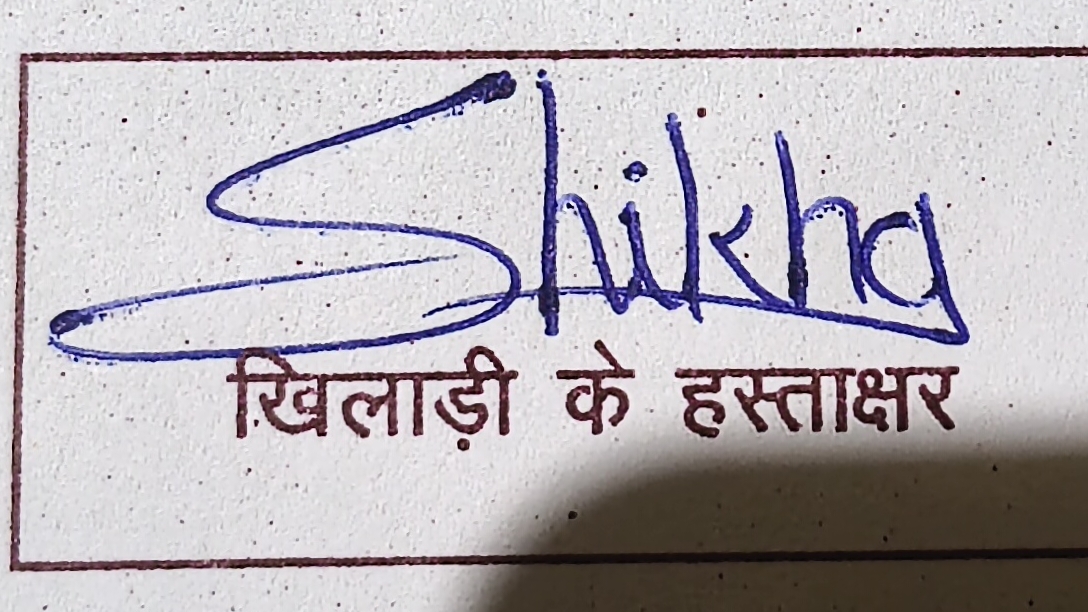 Shikha
खिलाड़ी के हस्ताक्षर